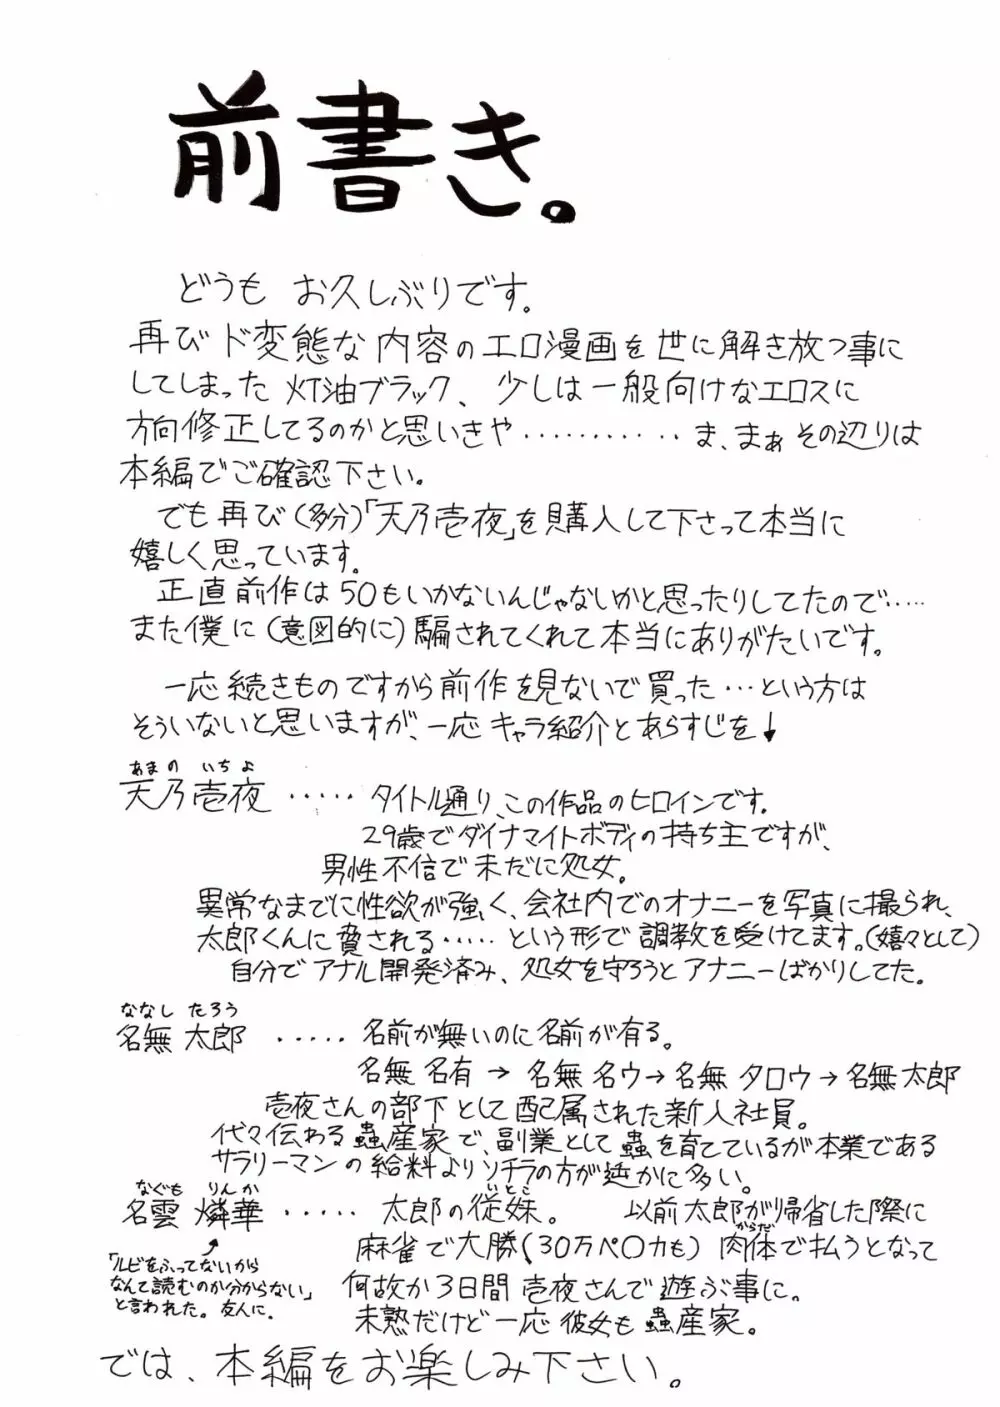 前書き。
どうも お久しぶりです。
再びド変態な内容のエロ漫画を世に解き放つ事に
してしまった灯油ブラック、少しは一般向けなエロスに
方向修正してるのかと思いきや‥‥‥‥‥‥ま、まぁその辺りは
本編でご確認下さい。
でも再び(多分)「天乃壱夜」を購入して下さって本当に
嬉しく思っています。
正直前作は50もいかないんじゃないかと思ったりしてたので‥‥‥
また僕に(意図的に)騙されてくれて本当にありがたいです。
一応続きものですから前作を見ないで買った…という方は
そういないと思いますが、一応キャラ紹介とあらすじを↓
あまの いちよ
天乃壱夜 ‥‥‥ タイトル通り、この作品のヒロインです。
29歳でダイナマイトボディの持ち主ですが、
男性不信で未だに処女。
異常なまでに性欲が強く、会社内でのオナニーを写真に撮られ、
太郎くんに脅される‥‥‥という形で調教を受けてます。(嬉々として)
自分でアナル開発済み、処女を守ろうとアナニーばかりしてた。
ななし たろう
名無 太郎 ‥‥‥ 名前が無いのに名前が有る。
名無 名有→名無 名ウ→名無 タロウ→名無太郎
壱夜さんの部下として配属された新入社員。
代々伝わる蟲産家で、副業として蟲を育てているが本業である
サラリーマンの給料よりソチラの方が遥かに多い。
なぐも りんか
いとこ
名雲 燐華 ‥‥‥ 太郎の従妹。 以前太郎が帰省した際に
からだ
麻雀で大勝(30万ペ〇カも)肉体で払うとなって
何故か3日間壱夜さんで遊ぶ事に。
未熟だけど一応彼女も蟲産家。
↑
「ルビをふってないから
なんて読むのか分からない」
と言われた。友人に。
では、本編をお楽しみ下さい。